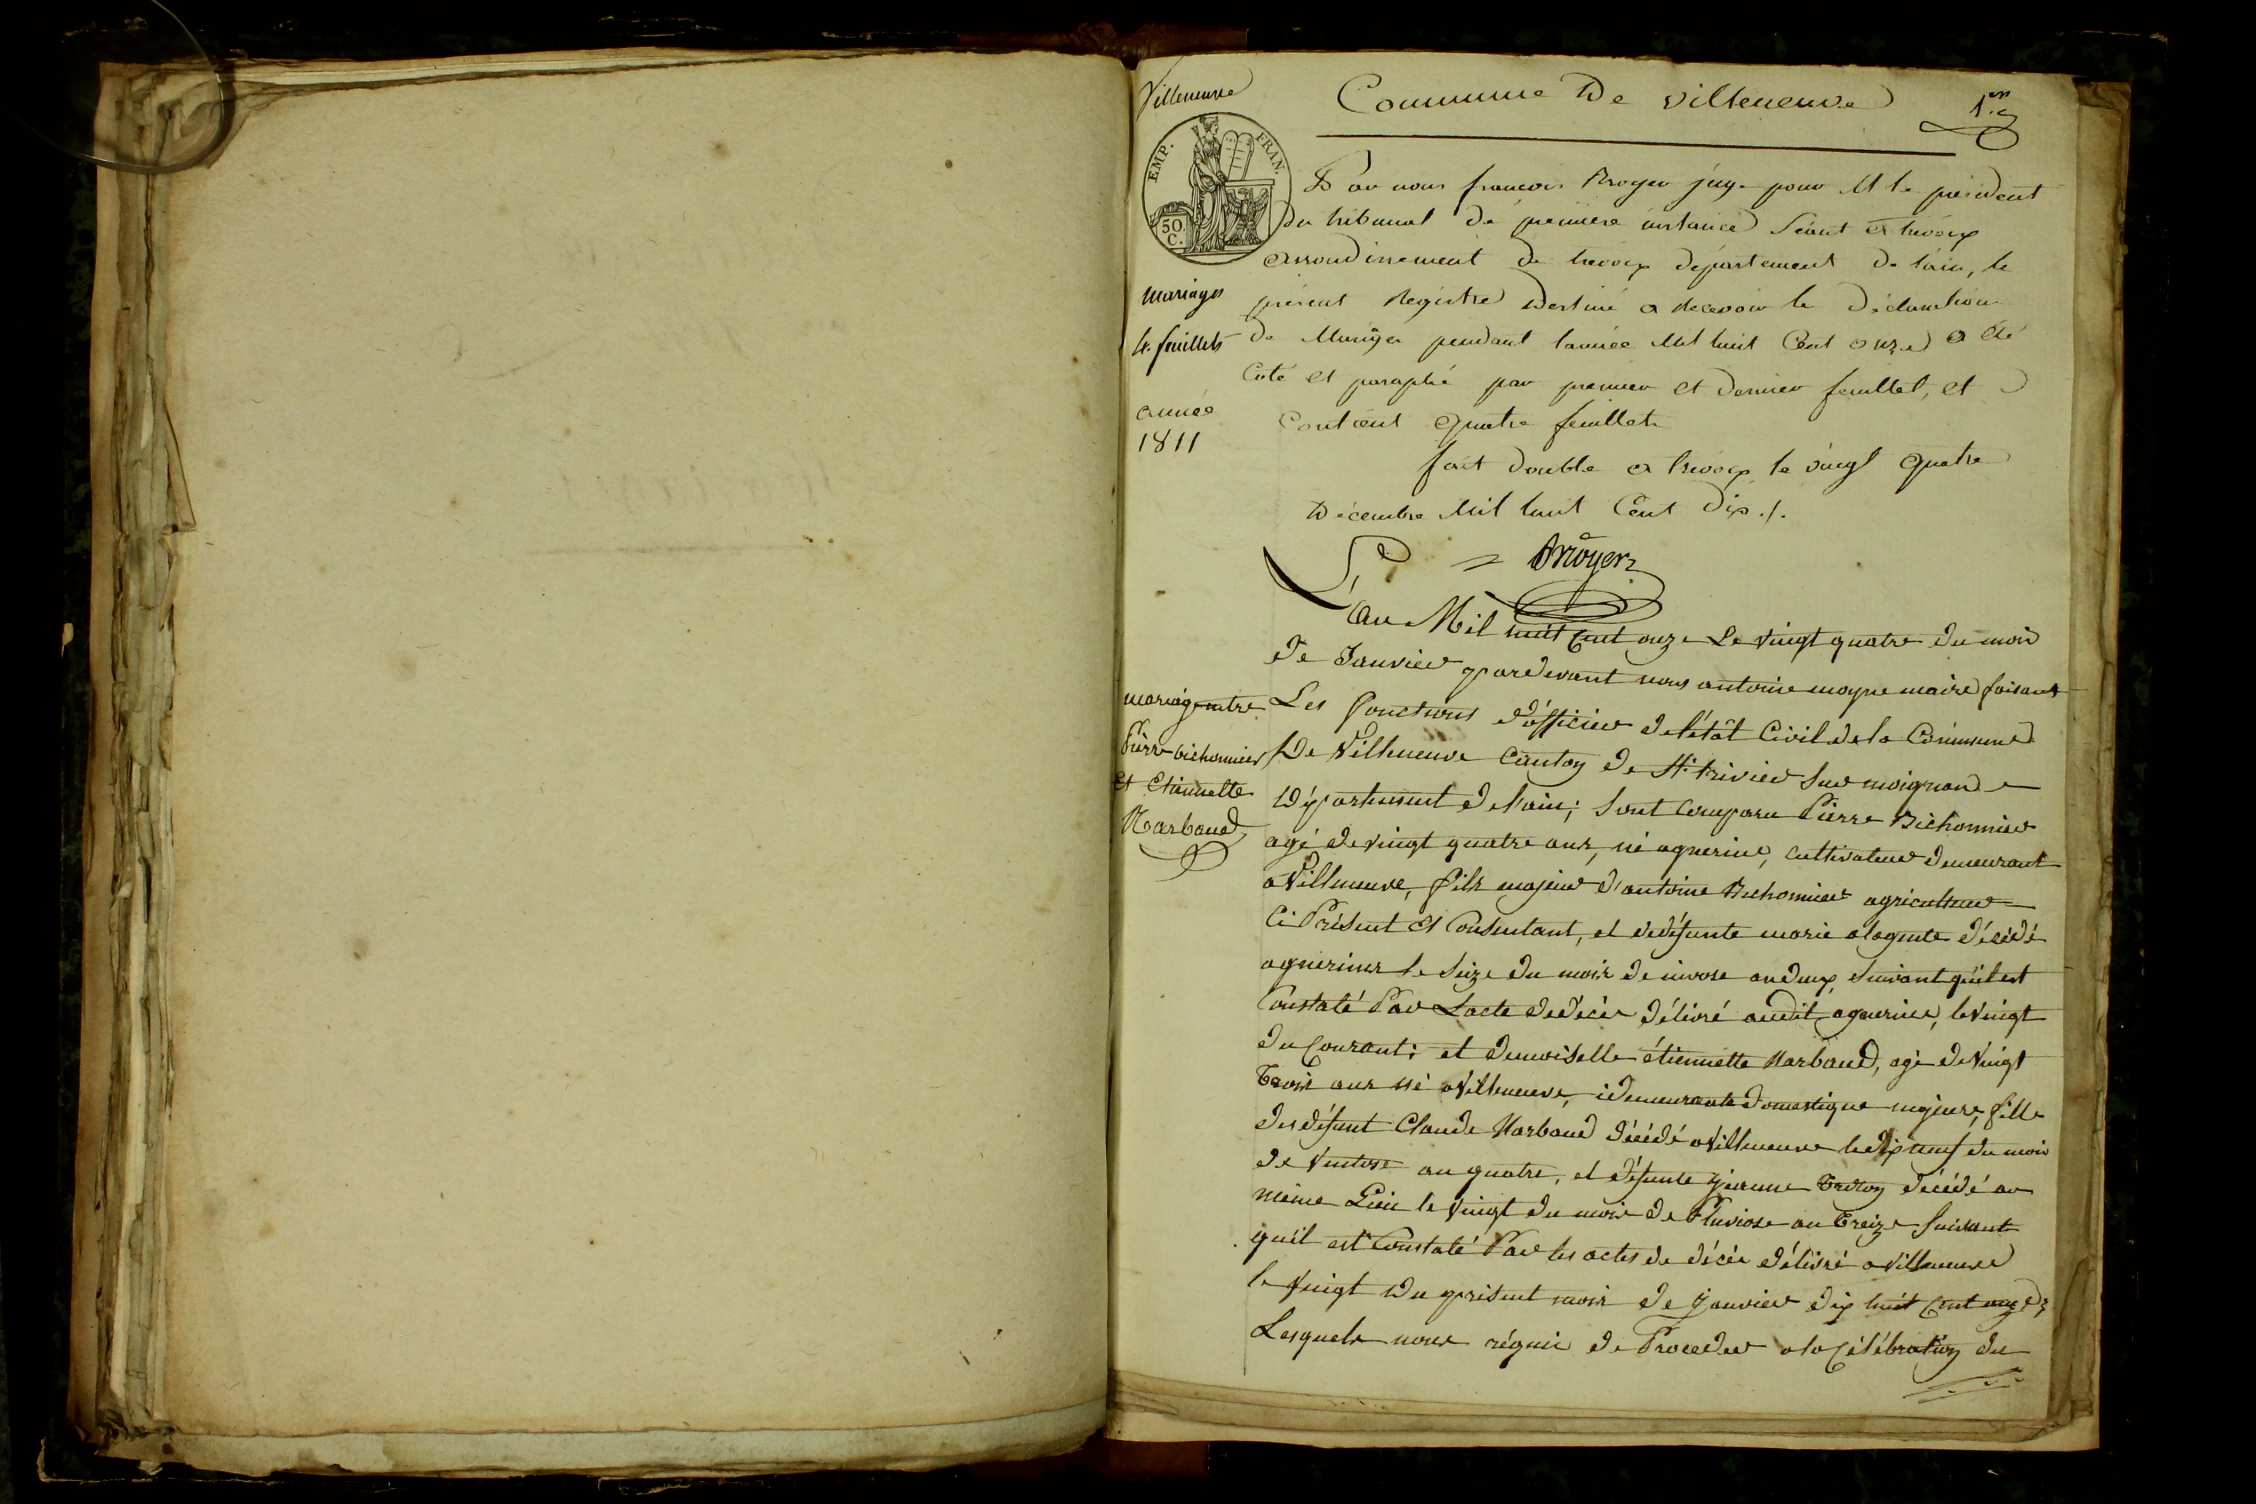 Villeneuve
Commune De villeneuve
1er
EMP. FRAN.
50. C.
Par nous francois Royer juge pour M le president
du tribunal de premiere instance Séant a trevoux
arrondissement de trevoux département de lain, le
mariages
présent Registre destiné a recevoir le déclaration
4. feuillets
de Mariage pendant lannée Mil huit Cent onze a été
Coté et paraphé par premier et dernier feuillet, et
année
1811
contient quatre feuillets
fait double a trevoux le vingt quatre
Décembre Mil huit Cent Dix ./.
L'an Mil huit Cent onze Le vingt quatre du mois
de Janvier pardevant nous antoine moyne maire faisant
mariage entre
Pierre bichonnier
et Etiennette
Narbaud
Les fonctions d'officier de l'état Civil de la Commune
De Villeneuve Canton de St. trivier sur moignand
Département de lain; sont comparu Pierre Bichonnier
agé de vingt quatre ans, né aguerine, cultivateur demeurant
a Villeneuve, fils majeur d'antoine Bichonnier agriculteur
Ci Présent et Consentant, et de défunte marie decédé
aguerines le Seize du mois de nivose an deux, suivant qu'il est
Constaté Par Lacte de décès délivré audit aguerine, le vingt
du Courant; et demoiselle étiennette Narbaud, agé de vingt
trois ans né a Villeneuve, i demeurante domestique majeure, fille
de défunt Claude Narbaud décédé a Villeneuve le dix neuf du mois
de Ventose an quatre, et défunte jeanne décédé au
même Lieu le vingt du mois de Pluviose an treize suivant
qu'il est Constaté Par les actes de décès délivré a Villeneuve
le vingt du présent mois de janvier dix huit Cent onze,
Lesquels nous réquis de Proceder a la Célébration du